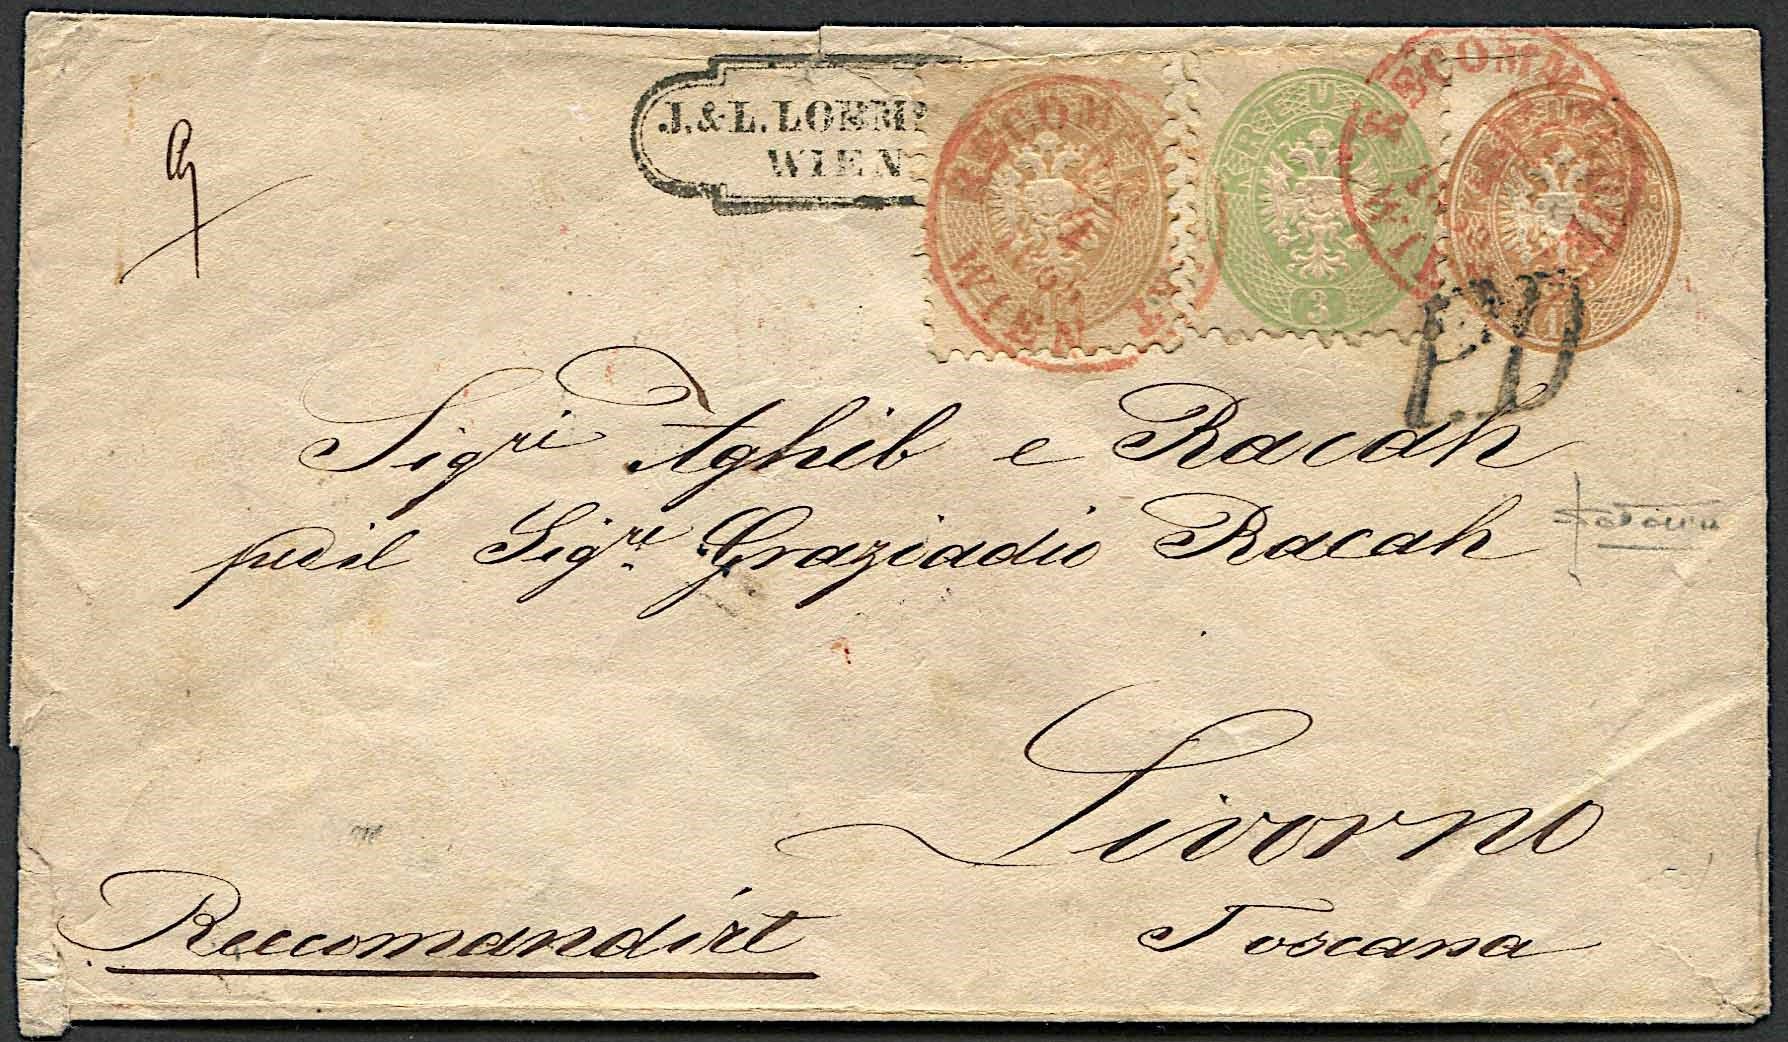 J. & L. LOEM
WIEN
RECOM
WIEN
KR
3
RECOMM
WIEN
15
P.D
Sigri Aghib e Racah
pedil Sigre Graziadio Racah
Livorno
Toscana
Reccomandirt